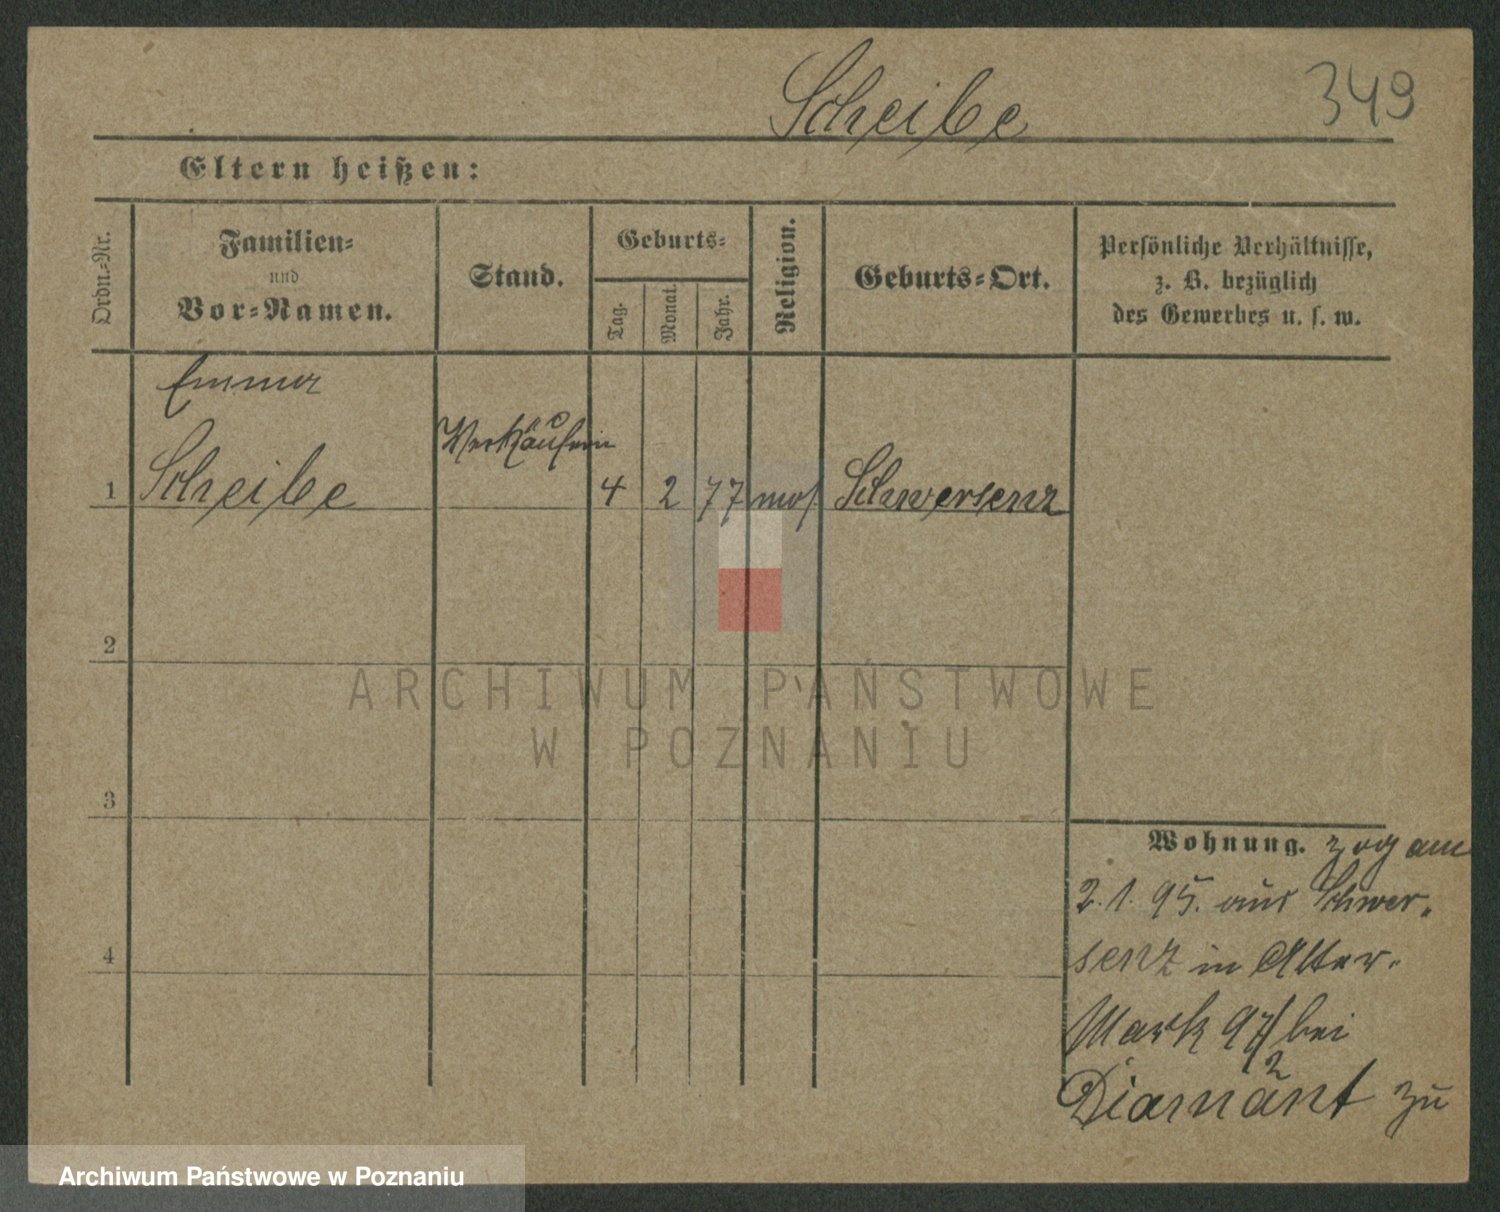 Scheibe
349
Eltern heißen:
Ordn.-Nr.
Familien-
und
Vor-Namen.
Stand.
Geburts-
Tag.
Monat.
Jahr.
Religion.
Geburts-Ort.
Persönliche Verhältnisse,
z. B. bezüglich
des Gewerbes u. s. w.
Emma
Verkäuferin
1 Scheibe 4 2 77 mos. Schwersenz
2
3
4
Wohnung. zog am
2. 1. 95. aus Schwer-
senz in Alter-
Markt 97/2 bei
Diamant zu
ARCHIWUM PAŃSTWOWE
W POZNANIU
Archiwum Państwowe w Poznaniu